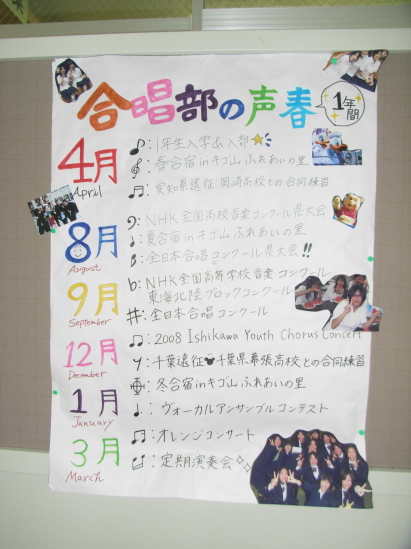 合唱部の声春
1年間
4月
April
1年生入学&入部
春合宿inキゴ山ふれあいの里
愛知県遠征:岡崎高校との合同練習
8月
August
NHK全国高校音楽コンクール県大会
夏合宿inキゴ山ふれあいの里
全日本合唱コンクール県大会!!
9月
September
NHK全国高等学校音楽コンクール
東海北陸ブロックコンクール
全日本合唱コンクール
12月
December
2008 Ishikawa Youth Chorus Concert
千葉遠征 千葉県幕張高校との合同練習
冬合宿inキゴ山ふれあいの里
1月
January
ヴォーカルアンサンブルコンテスト
3月
March
オレンジコンサート
定期演奏会